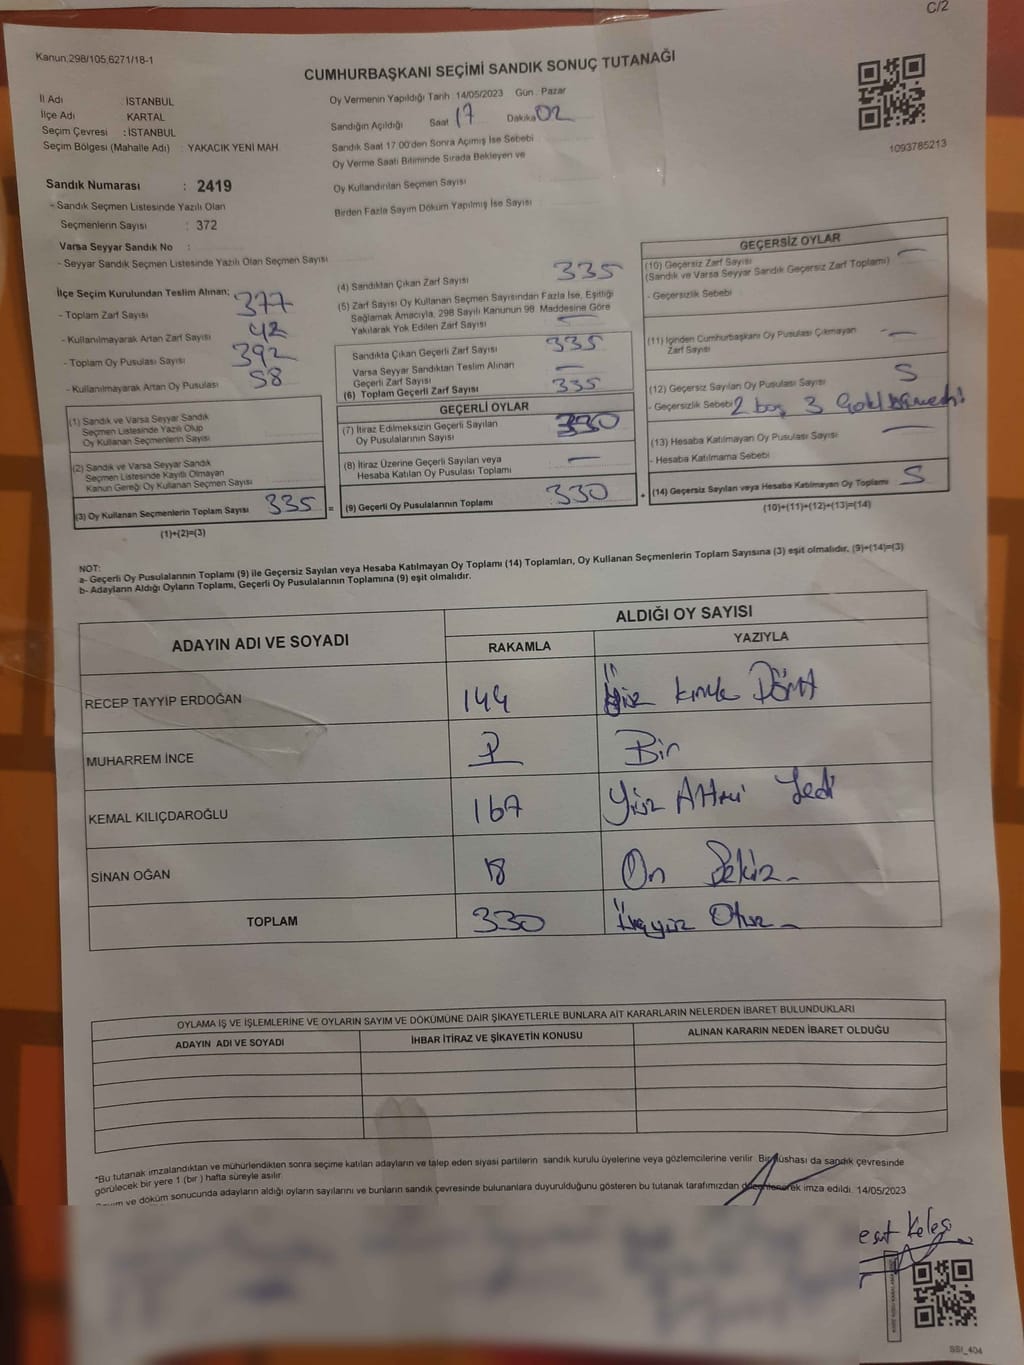 C/2
Kanun:298/105;6271/18-1
CUMHURBAŞKANI SEÇİMİ SANDIK SONUÇ TUTANAĞI
İl Adı : İSTANBUL
İlçe Adı : KARTAL
Seçim Çevresi : İSTANBUL
Seçim Bölgesi (Mahalle Adı) : YAKACIK YENİ MAH
Sandık Numarası : 2419
- Sandık Seçmen Listesinde Yazılı Olan
Seçmenlerin Sayısı : 372
Varsa Seyyar Sandık No :
- Seyyar Sandık Seçmen Listesinde Yazılı Olan Seçmen Sayısı
Oy Vermenin Yapıldığı Tarih 14/05/2023 Gün : Pazar
Sandığın Açıldığı Saat 17 Dakika 02
Sandık Saat 17.00'den Sonra Açılmış İse Sebebi
Oy Verme Saati Bitiminde Sırada Bekleyen ve
Oy Kullandırılan Seçmen Sayısı
Birden Fazla Sayım Döküm Yapılmış İse Sayısı
1093785213
İlçe Seçim Kurulundan Teslim Alınan;
- Toplam Zarf Sayısı 377
- Kullanılmayarak Artan Zarf Sayısı 42
- Toplam Oy Pusulası Sayısı 392
- Kullanılmayarak Artan Oy Pusulası 58
(1) Sandık ve Varsa Seyyar Sandık
Seçmen Listesinde Yazılı Olup
Oy Kullanan Seçmenlerin Sayısı
(2) Sandık ve Varsa Seyyar Sandık
Seçmen Listesinde Kayıtlı Olmayan
Kanun Gereği Oy Kullanan Seçmen Sayısı
(3) Oy Kullanan Seçmenlerin Toplam Sayısı 335
(1)+(2)=(3)
(4) Sandıktan Çıkan Zarf Sayısı 335
(5) Zarf Sayısı Oy Kullanan Seçmen Sayısından Fazla İse, Eşitliği
Sağlamak Amacıyla, 298 Sayılı Kanunun 98. Maddesine Göre
Yakılarak Yok Edilen Zarf Sayısı —
Sandıkta Çıkan Geçerli Zarf Sayısı 335
Varsa Seyyar Sandıktan Teslim Alınan
Geçerli Zarf Sayısı —
(6) Toplam Geçerli Zarf Sayısı 335
GEÇERLİ OYLAR
(7) İtiraz Edilmeksizin Geçerli Sayılan
Oy Pusulalarının Sayısı 330
(8) İtiraz Üzerine Geçerli Sayılan veya
Hesaba Katılan Oy Pusulası Toplamı —
= (9) Geçerli Oy Pusulalarının Toplamı 330 +
GEÇERSİZ OYLAR
(10) Geçersiz Zarf Sayısı —
(Sandık ve Varsa Seyyar Sandık Geçersiz Zarf Toplamı)
- Geçersizlik Sebebi
(11) İçinden Cumhurbaşkanı Oy Pusulası Çıkmayan
Zarf Sayısı —
(12) Geçersiz Sayılan Oy Pusulası Sayısı 5
- Geçersizlik Sebebi 2 boş 3
(13) Hesaba Katılmayan Oy Pusulası Sayısı —
- Hesaba Katılmama Sebebi
(14) Geçersiz Sayılan veya Hesaba Katılmayan Oy Toplamı 5
(10)+(11)+(12)+(13)=(14)
NOT:
a- Geçerli Oy Pusulalarının Toplamı (9) ile Geçersiz Sayılan veya Hesaba Katılmayan Oy Toplamı (14) Toplamları, Oy Kullanan Seçmenlerin Toplam Sayısına (3) eşit olmalıdır. (9)+(14)=(3)
b- Adayların Aldığı Oyların Toplamı, Geçerli Oy Pusulalarının Toplamına (9) eşit olmalıdır.
ADAYIN ADI VE SOYADI ALDIĞI OY SAYISI
RAKAMLA YAZIYLA
RECEP TAYYİP ERDOĞAN 144 Yüz kırk Dört
MUHARREM İNCE 1 Bir
KEMAL KILIÇDAROĞLU 167 Yüz Altmış Yedi
SİNAN OĞAN 18 On Sekiz
TOPLAM 330 Üçyüz Otuz
OYLAMA İŞ VE İŞLEMLERİNE VE OYLARIN SAYIM VE DÖKÜMÜNE DAİR ŞİKAYETLERLE BUNLARA AİT KARARLARIN NELERDEN İBARET BULUNDUKLARI
ADAYIN ADI VE SOYADI İHBAR İTİRAZ VE ŞİKAYETİN KONUSU ALINAN KARARIN NEDEN İBARET OLDUĞU
*Bu tutanak imzalandıktan ve mühürlendikten sonra seçime katılan adayların ve talep eden siyasi partilerin sandık kurulu üyelerine veya gözlemcilerine verilir. Bir nüshası da sandık çevresinde
görülecek bir yere 1 (bir) hafta süreyle asılır.
Sayım ve döküm sonucunda adayların aldığı oyların sayılarını ve bunların sandık çevresinde bulunanlara duyurulduğunu gösteren bu tutanak tarafımızdan düzenlenerek imza edildi. 14/05/2023
esut Keleş
SSI_404